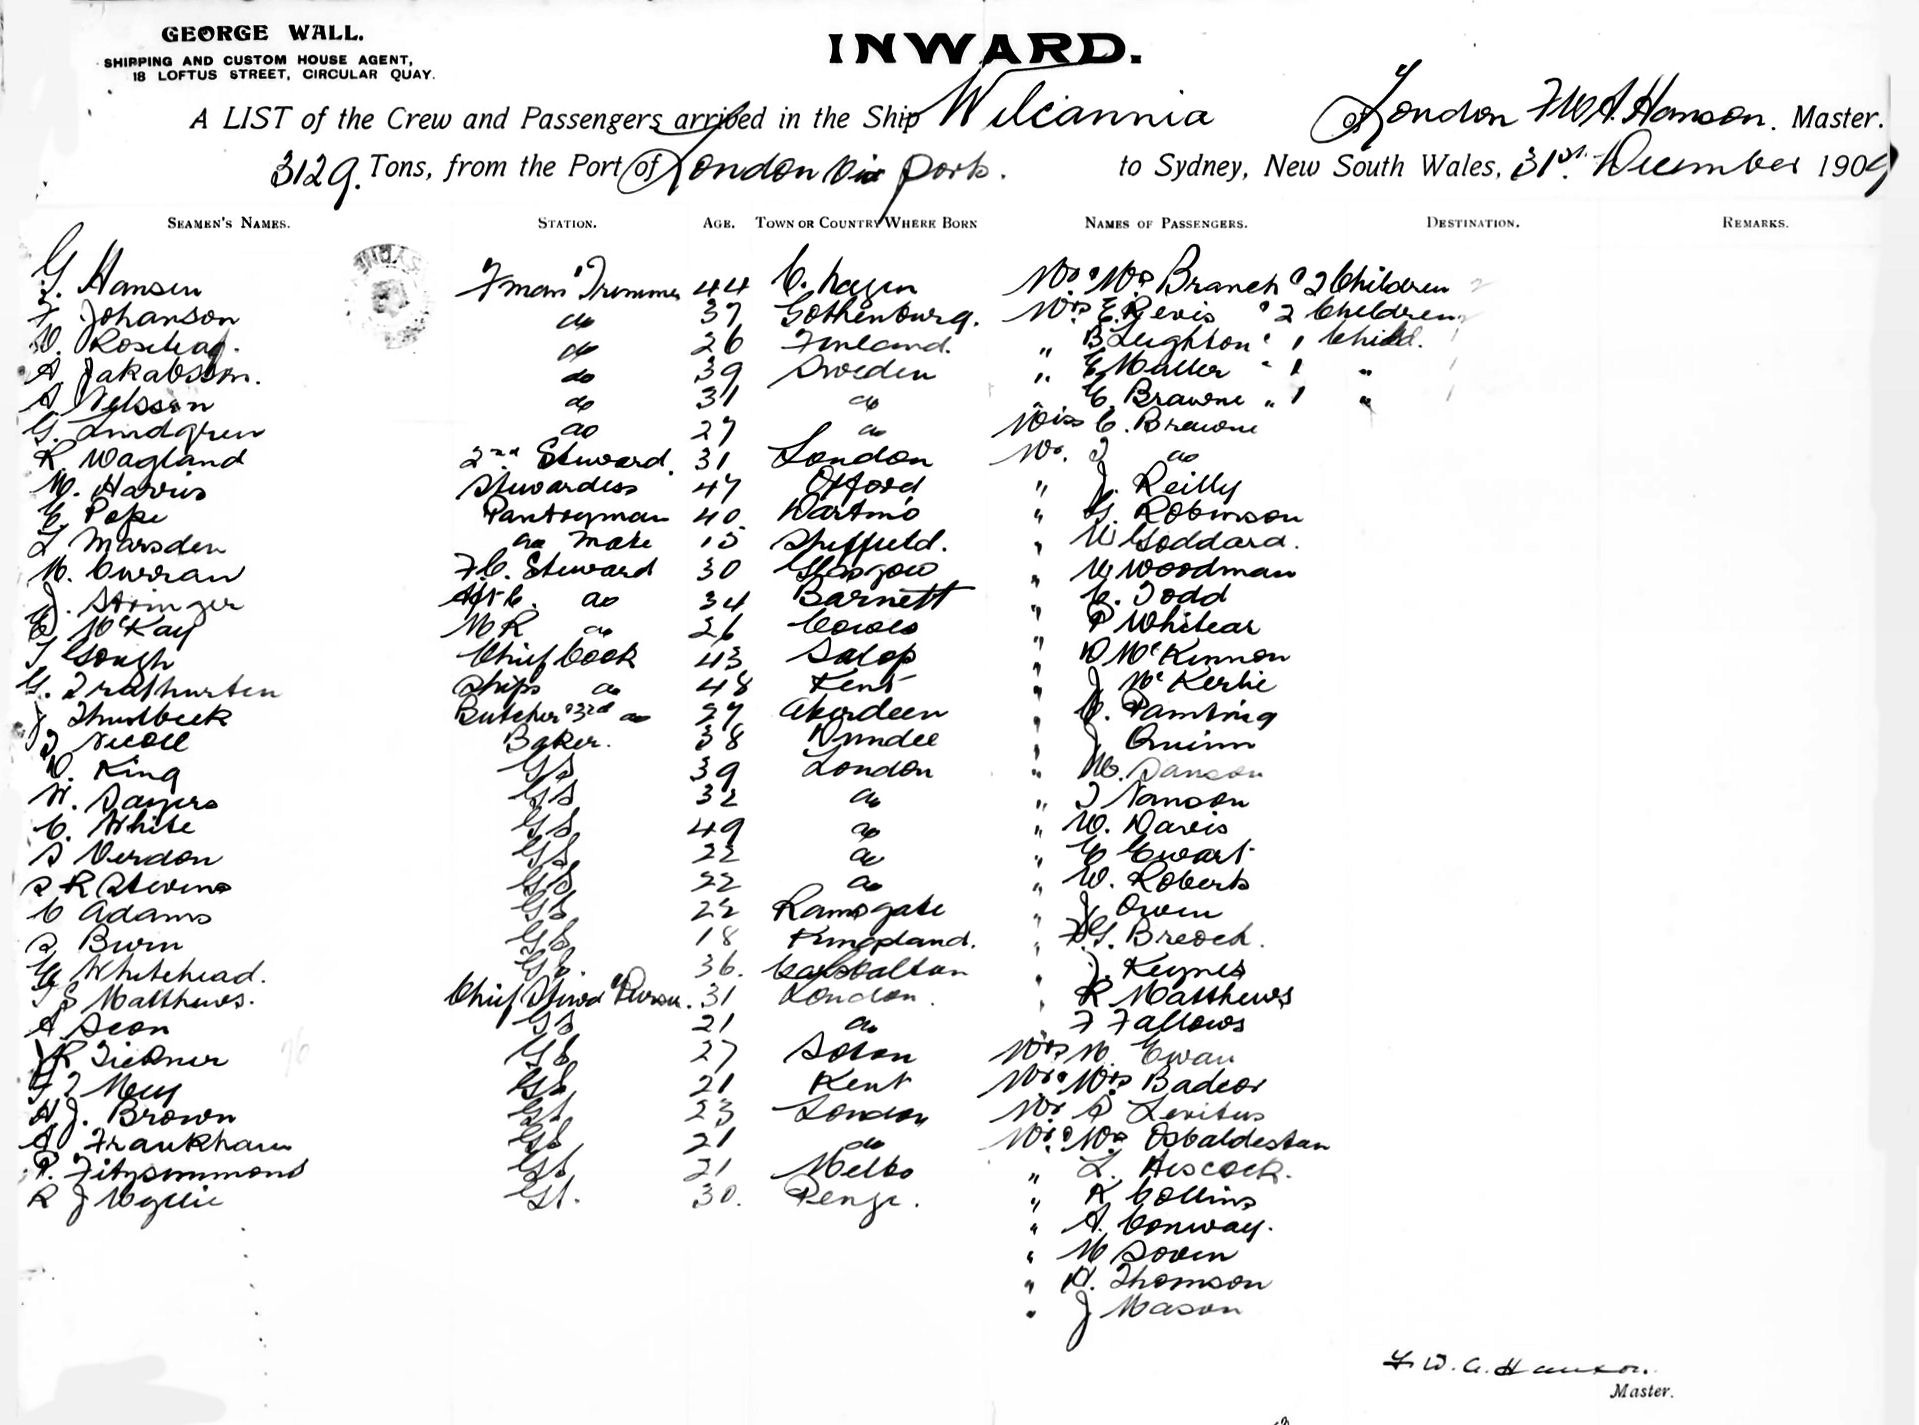 GEORGE WALL.
SHIPPING AND CUSTOM HOUSE AGENT,
18 LOFTUS STREET, CIRCULAR QUAY.
INWARD.
A LIST of the Crew and Passengers arrived in the Ship Wilcannia of London F W A. Hanson. Master.
3129. Tons, from the Port of London via ports. to Sydney, New South Wales, 31st. December 1909
SEAMEN'S NAMES. STATION. AGE. TOWN OR COUNTRY WHERE BORN NAMES OF PASSENGERS. DESTINATION. REMARKS.
G. Hansen Fman & Trimmer 44 C. hagen Mr & Mrs Branch & 2 Children
F Johanson do 37 Gothenburg. Mrs E. & 2 Children
do 26 Finland. " B Leighton & 1 Child.
A Jakobsson. do 39 Sweden " E Maller " 1 "
A Nelsson do 31 do " C. Browne " 1 "
G. Lindgren do 27 do Miss C. Browne
R Wagland 2nd Steward. 31 London Mr. J do
M. Harris Stewardess 47 Offord " J. Reilly
E Pope Pantryman 40. Dartmo " G. Robinson
L Marsden do mate Sheffield. " W Goddard.
M. Curran F.C. Steward 30 Glasgow " W Woodman
J. Stringer Aft C. do 34 Barnett " C. Todd
E McKay M R do 26 Cowes " P Whitear
T Gough Chief Cook 43 Salop " D McKinnon
G. Ships do 48 Kent " J McKerlie
J Butcher & 3rd do 27 Aberdeen " C.
J Nicoll Baker. 38 Dundee " J Quinn
W. King GS 39 London " W. Sanson
W. Sayers GS 32 do " J Nanson
C. White GS 49 do " W. Davis
S Verdon GS 22 do " E Ewart
S R Stevens GS 22 do " W. Roberts
C Adams GS 22 Ramsgate " J Owen
S Burn GS 18 Kingsland. " F G. Breock.
G Whitehead. GS. 36. Carshalton " J. Keynes
T S Matthews. Chief Stewd & Purser. 31 London. " R Matthews
A Seon GS 21 do " F Fallows
J R Tickner GS 27 Soton Mrs M. Ewan
F J GS 21 Kent Mr & Mrs Badcor
H J. Brown GS 23 London Mr S Levitus
A Frankham GS 21 do Mr & Mrs Osbaldestan
P. Fitzsimmons GS 21 Melbo " L. Hiscock.
R J Wyllie GS. 30. Penge. " R Collins
" A. Conway.
" M Soven
" H. Thomson
" J Mason
F. W. A. Hanson.
Master.